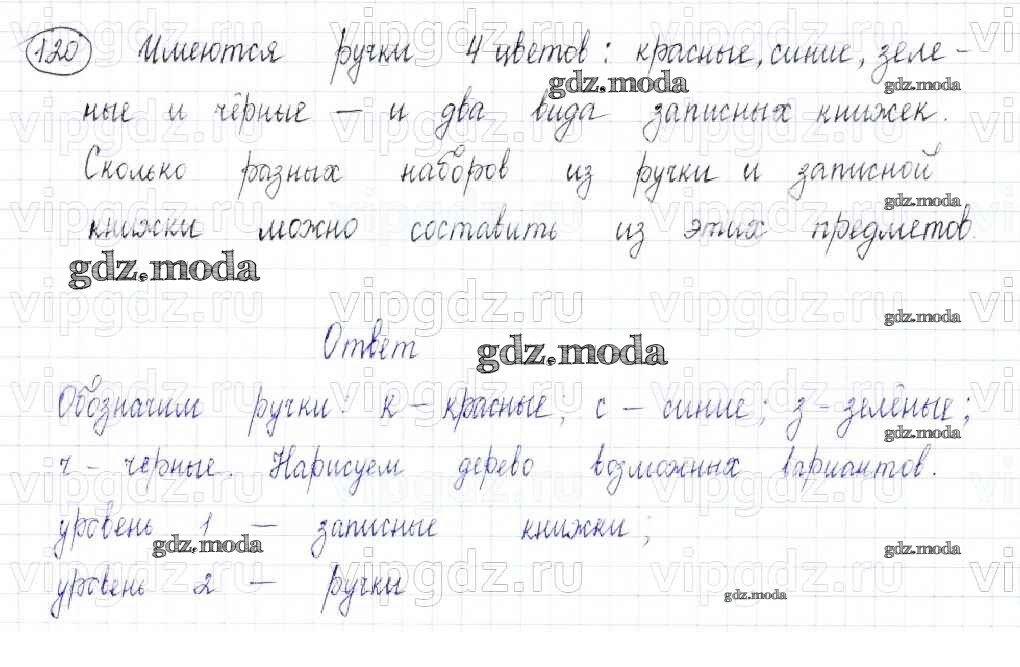 120 Имеются ручки 4 цветов: красные, синие, зеле-
ные и чёрные — и два вида записных книжек.
Сколько разных наборов из ручки и записной
книжки можно составить из этих предметов.
Ответ
Обозначим ручки: к – красные; с – синие; з – зелёные;
ч – черные. Нарисуем дерево возможных вариантов.
уровень 1 — записные книжки;
уровень 2 — ручки